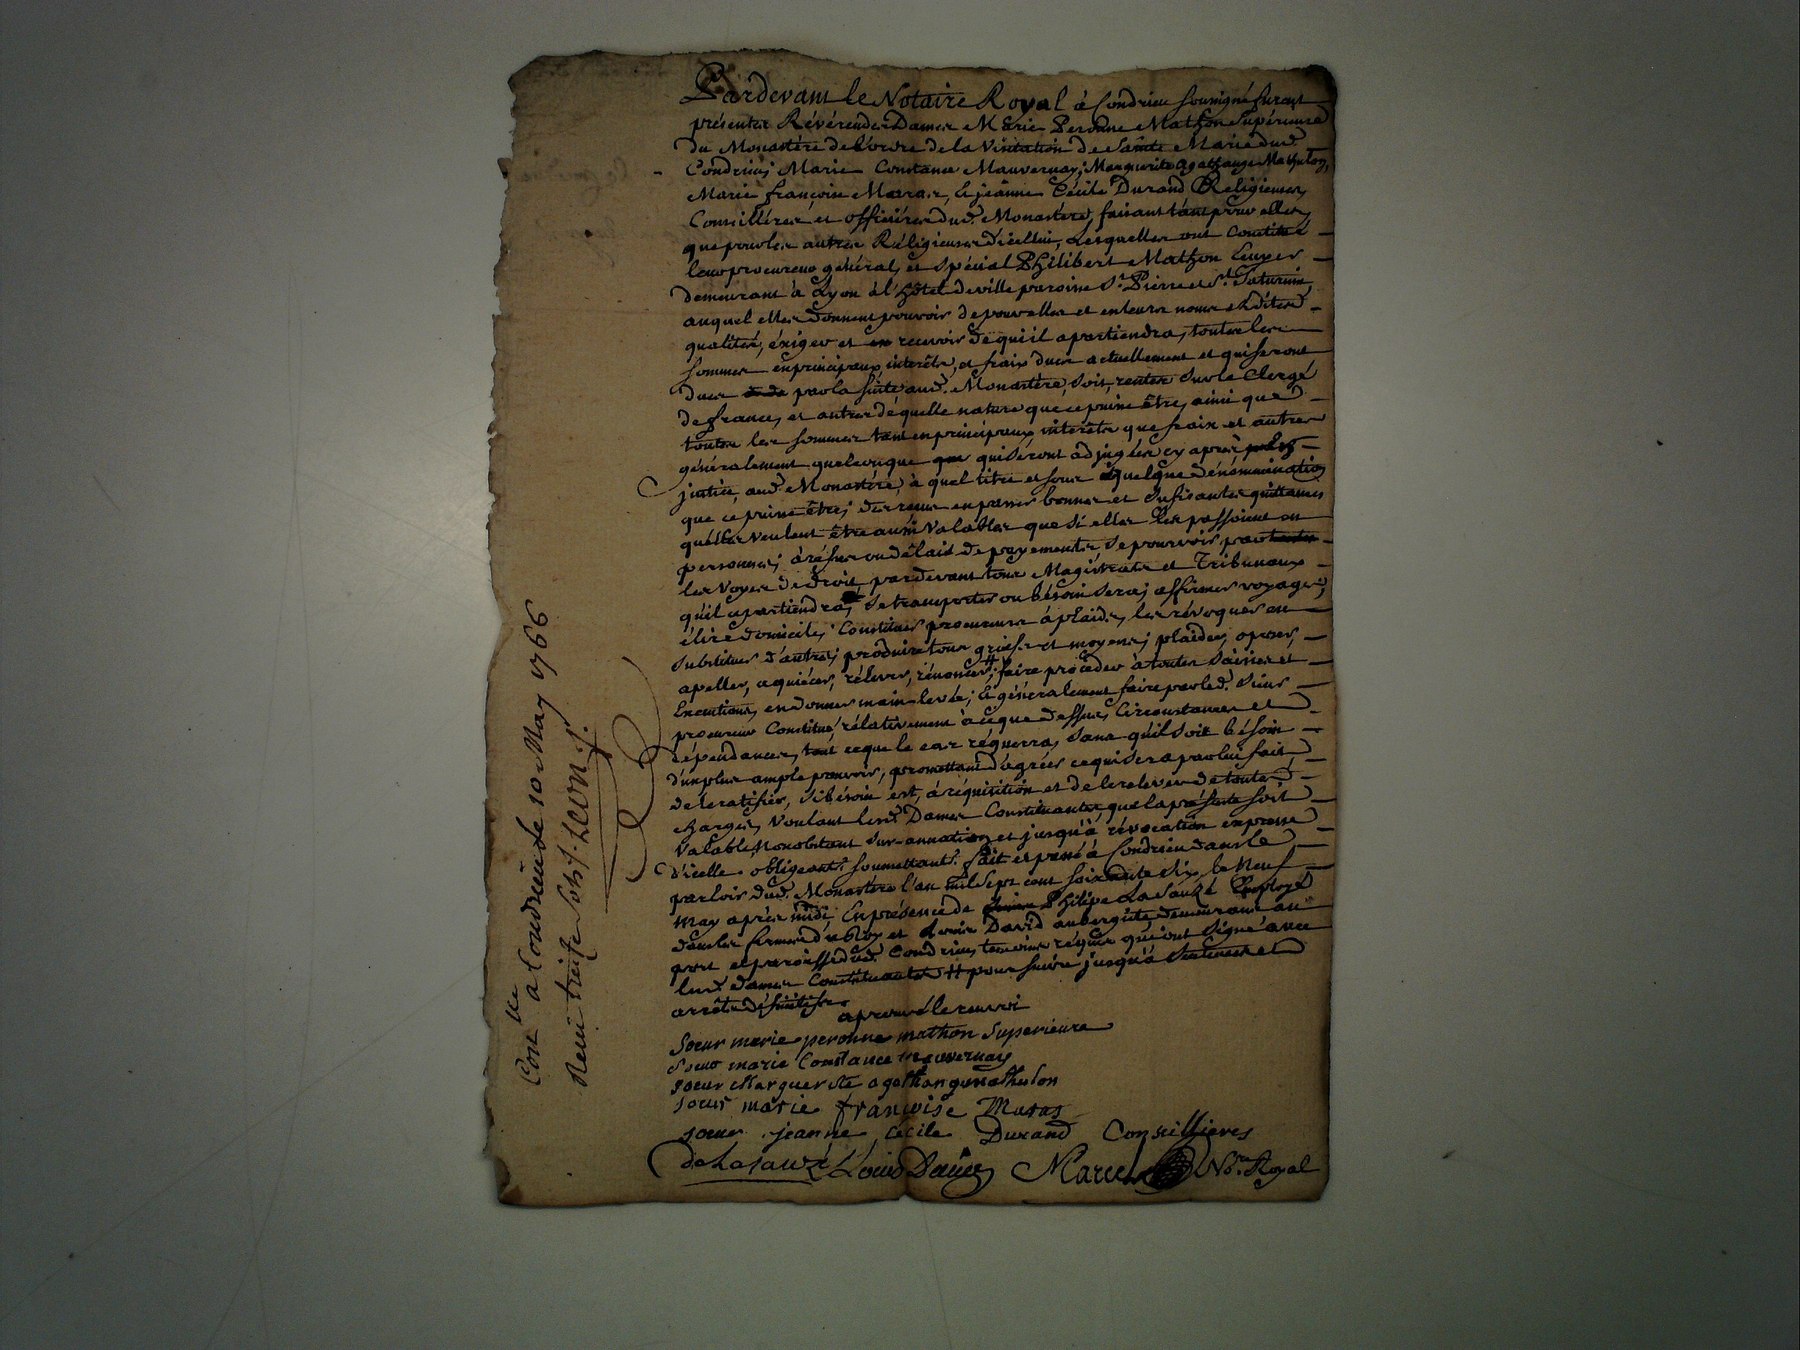 Pardevant le Notaire Royal à Condrieu soussigné furent
présentes Révérendes Dames Marie Peronne Mathon Supérieure
du Monastère de l'ordre de la Visitation de Sainte Marie dud.
Condrieu; Marie Constance Mauvernay; Marguerite Agathange Mathulon,
Marie françoise Maras, & jeanne Cécile Durand Religieuses
Conseilléres et officières dud. Monastère, faisant tant pour elles,
que pour les autres Réligieuses d'icellui, Lesquelles ont Constitué
leur procureur général, et spécial Philibert Mathon Ecuyer
demeurant à Lyon à l'hôtel de ville paroisse St. Pierre et St. Saturnin,
auquel elles donnent pouvoir de pour elles et en leurs noms et
qualités, éxiger et recevoir de qui il apartiendra, toutes les
sommes en principaux, interêts, et fraix dues actuellement et qui seront
dues par la suite aud. Monastère, soit, rentes sur le Clergé
de france, et autres de quelle nature que ce puisse être, ainsi que
toutes les sommes tant en principaux, interêts que fraix et autres
généralement quelconque qui seront adjugées cy après
justice, aud. Monastère, à quel titre et sous quelque dénomination
que ce puisse être; des reçus en passer bonnes et sufisantes quittances
qu'elles veulent être aussi valables que si elles les passoient en
personnes; à réfus ou délais de payements, se pourvoir par
les voyes de droit, pardevant tous Magistrats et Tribunaux
qu'il apartiendra, se transporter ou bésoin sera; affirmer voyages,
élire domicile, Constituer procureurs à plaids, les révoquer en
substituer d'autres; produire tous griefs et moyens; plaider, oposer,
apeller, aquiécer, rélever, rénoncer, # faire procéder à toutes saisies et
Exécutions, en donner main-levée; & généralement faire par led. Sieur
procureur Constitué, rélativement à ce que dessus, Circonstances et
dépendances, tout ce que le cas réquerra, sans qu'il soit bésoin
d'un plus ample pouvoir, promettant d'agréer ce qui sera par lui fait,
de le ratifier, si bésoin est, à réquisition et de le relever de toutes
charges, voulant lesd. Dames Constituantes, que la présente soit
valable, Nonobstant sur-annation, et jusqu'à révocation expresse
d'icelle. obligeant. soumettant. fait et passé à Condrieu dans le
parloir dud. Monastère l'an mil sept cent soixante six, le Neuf
May après midi, En présence de Philipe La Sauzé Employé
dans les fermes du Roy et Louis David aubergiste, demeurant au
port et paroisse dud. Condrieu, temoins réquis qui ont signé avec
lesd. dames Constituantes # poursuivre jusqu'à sentences et
arrêts définitifs
aprouvé le renvoi
Soeur marie peronne mathon Superieure
Soeur marie Constance mauvernay
soeur Marguerite agathange mathulon
soeur marie françoise Maras
soeur jeanne Cécile Durand Conseillieres
de Lasauzé Louis David Marcel Nore. Royal
Con.lle a Condrieu le 10 May 1766
Reçu treise sols f. Leon. s.